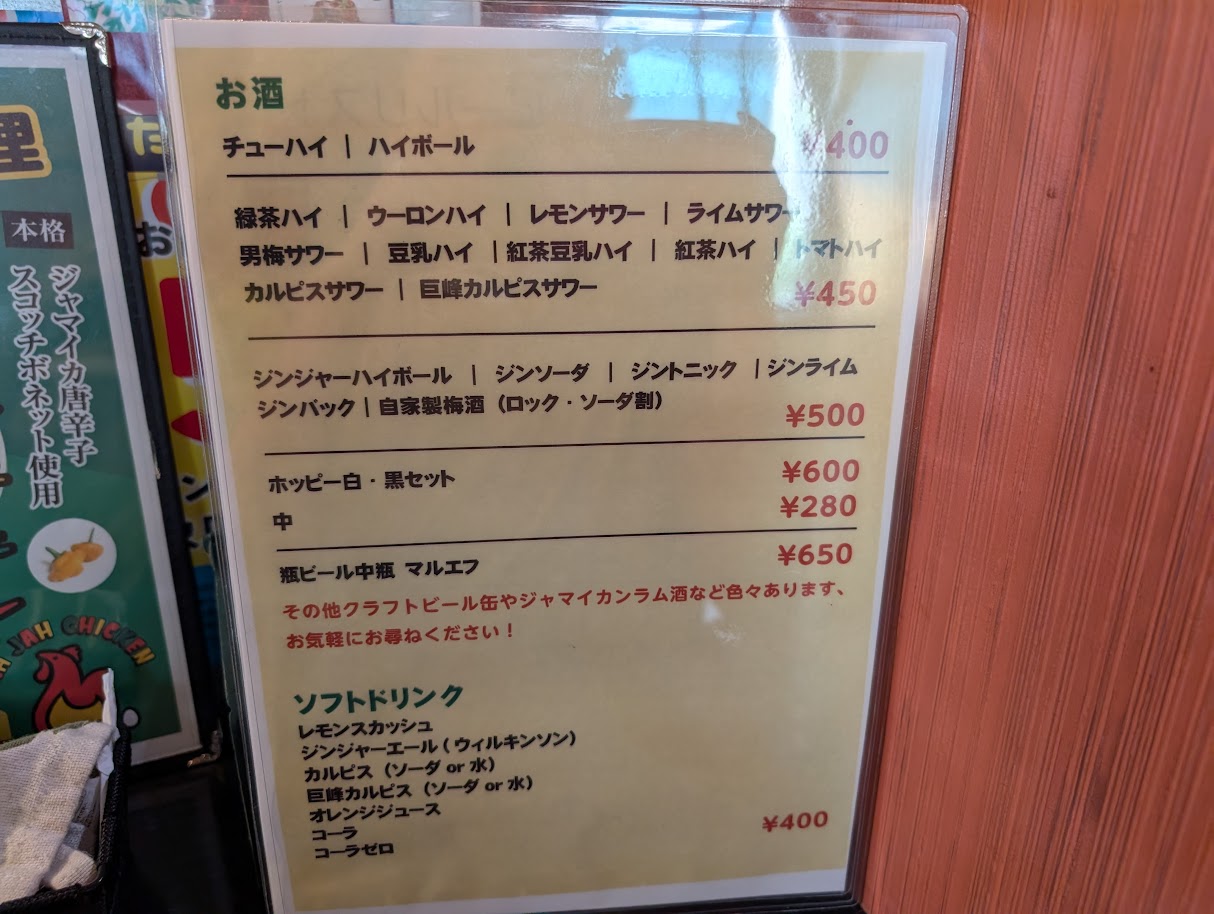 お酒
チューハイ | ハイボール ¥400
緑茶ハイ | ウーロンハイ | レモンサワー | ライムサワー
男梅サワー | 豆乳ハイ | 紅茶豆乳ハイ | 紅茶ハイ | トマトハイ
カルピスサワー | 巨峰カルピスサワー ¥450
ジンジャーハイボール | ジンソーダ | ジントニック | ジンライム
ジンバック | 自家製梅酒（ロック・ソーダ割） ¥500
ホッピー白・黒セット ¥600
中 ¥280
瓶ビール中瓶 マルエフ ¥650
その他クラフトビール缶やジャマイカンラム酒など色々あります、
お気軽にお尋ねください！
ソフトドリンク
レモンスカッシュ
ジンジャーエール（ウィルキンソン）
カルピス（ソーダ or 水）
巨峰カルピス（ソーダ or 水）
オレンジジュース
コーラ ¥400
コーラゼロ
理
本格
ジャマイカ唐辛子
スコッチボネット使用
JAH CHICKEN
た
お